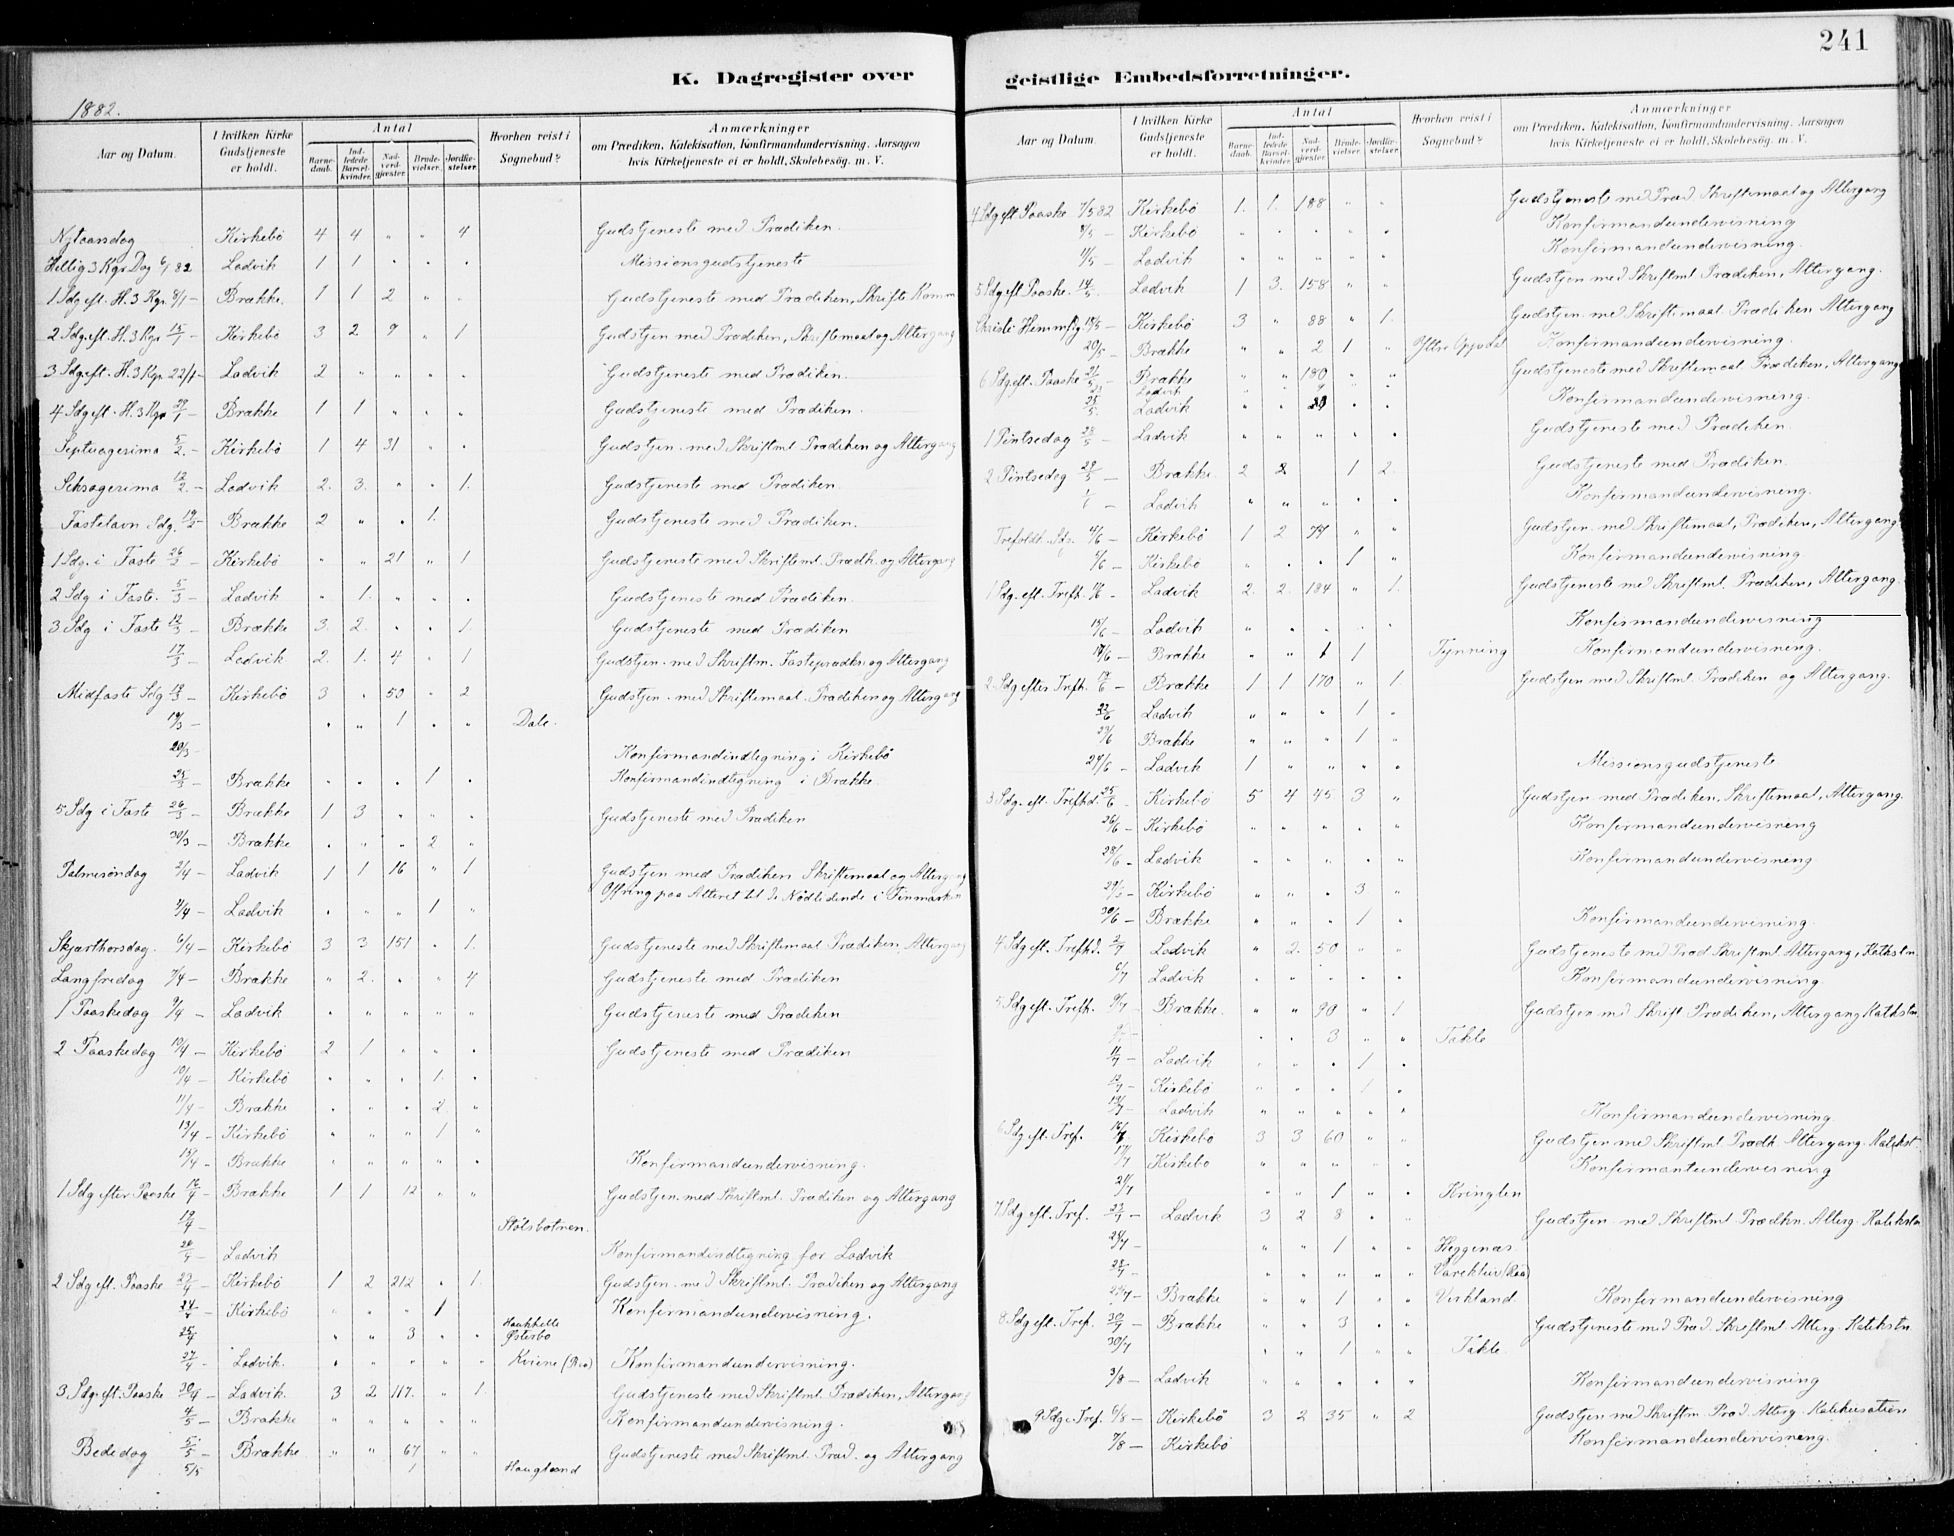 K. Dagregister over
1882.
Aar og Datum. I hvilken Kirke Gudstjeneste er holdt. Antal Barnedaab. Indledede Barselkvinder. Nadverdgjæster. Brudevielser. Jordfæstelser. Hvorhen reist i Sognebud? Anmærkninger om Prædiken, Katekisation, Konfirmandundervisning, Aarsagen hvis Kirketjeneste ei er holdt, Skolebesög. m. V.
Nytaarsdag Kirkebö 4 4 " " 4 Gudstjeneste med Prædiken.
Hellig 3 Kgr Dag 6/1 82 Ladvik 1 1 " " " Missionsgudstjeneste
1 Sdg eft. H. 3 Kgr. 8/1 — Brække. 1 1 2 " " Gudstjeneste med Prædiken, Skrifte Komm
2 Sdg. eft. H. 3 Kgr 15/1 — Kirkebö 3 2 9 " 1 Gudstjen. med Prædiken, Skriftemaal og Altergang
3 Sdg. eft. H. 3 Kgr. 22/1 — Ladvik 2 " " " " Gudstjeneste med Prædiken.
4 Sdg eft. H. 3 Kgr 29/1 — Brække 1 1 " " " Gudstjeneste med Prædiken.
Septuagesima 5/2 — Kirkebö 1 4 31 " " Gudstjen. med Skriftml. Prædiken og Altergang
Seksagesima 12/2 — Ladvik 2. 3. " " 1. Gudstjeneste med Prædiken.
Fastelavn Sdg. 19/2 — Brække 2 " " 1. Gudstjeneste med Prædiken.
1 Sdg. i Faste 26/2 — Kirkebö " " 21 " 1 Gudstjeneste med Skriftml. Prædk. og Altergang
2 Sdg i Faste. 5/3 — Ladvik " 1. " " " Gudstjeneste med Prædiken.
3 Sdg i Faste 12/3 — Brække 3. 2. " " 1 Gudstjeneste med Prædiken
17/3 — Ladvik 2. 1. 4 " 1 Gudstjen. med Skriftm. Fasteprædkn og Altergang
Midfaste Sdg 19/3 — Kirkebö 3 " 50 " 2 Gudstjen. med Skriftemaal. Prædiken og Altergang
19/3 — " " 1 " " Dale.
20/3 — Konfirmandindtegning i Kirkebö
25/3 — Brække " " " 1 " Konfirmandindtegning i Brække.
5 Sdg i Faste 26/3 — Brække 1 3 " " " Gudstjeneste med Prædiken
30/3 — Brække " " " 2 "
Palmesöndag 2/4 — Ladvik 1 1 16 " 1 Gudstjen med Prædiken Skriftemaal og Altergang
Offring paa Alteret til de Nödlidende i Finmarken
2/4 — Ladvik " " " 1 "
Skjærthorsdag. 6/4 — Kirkebö 3 3 151 " 1. Gudstjeneste med Skriftemaal Prædiken Altergang
Langfredag 7/4 — Brække " 2. " " 4 Gudstjeneste med Prædiken
1 Paaskedag 9/4 — Ladvik " " " " " Gudstjeneste med Prædiken
2 Paaskedag 10/4 — Kirkebö 2 1 " " " Gudstjeneste med Prædiken
10/4 — Kirkebö " " " 1. "
11/4 — Brække " " " 2. "
13/4 — Kirkebö " " " 1 "
15/4 — Brække " " " " " Konfirmandundervisning.
1 Sdg efter Paaske 16/4 — Brække 1 1 12 " " Gudstjen. med Skriftml. Prædiken og Altergang
19/4 — Stölsbotnen.
20/4 — Ladvik Konfirmandindtegning for Ladvik
2 Sdg eft. Paaske 23/4 — Kirkebö 1 2 212 " 1. Gudstjen. med Skriftml. Prædiken og Altergang
24/4 — Kirkebö " " " 1 Konfirmandundervisning.
25/4 " " 3 " " Österbö
27/4 — Ladvik. " " " " " Kværne (Rea) Konfirmandundervisning.
3 Sdg. eft. Paaske 30/4 — Ladvik 3 2 117. " 1. Gudstjeneste med Skriftml. Prædiken, Altergang
4/5 — Brække " " " " " Konfirmandundervisning.
Bededag 5/5 — Brække " " 67 " " Gudstjeneste med Skriftml. Præd. og Altergang
5/5 1 Haugland

geistlige Embedsforretninger.
241
Aar og Datum. I hvilken Kirke Gudstjeneste er holdt. Antal Barnedaab. Indledede Barselkvinder. Nadverdgjæster. Brudevielser. Jordfæstelser. Hvorhen reist i Sognebud? Anmærkninger om Prædiken, Katekisation, Konfirmandundervisning, Aarsagen hvis Kirketjeneste ei er holdt, Skolebesög. m. V.
4 Sdg eft. Paaske 7/5 82 Kirkebö 1. 1. 188 " " Gudstjeneste med Præd. Skriftemaal og Altergang
8/5 — Kirkebö " " " " " Konfirmandundervisning
11/5 — Ladvik " " " " " Konfirmandundervisning.
5 Sdg eft Paaske. 14/5 Ladvik 1 3. 158 " " Gudstjen med Skriftml Prædiken, Altergang.
Christi Himmfg 18/5 — Kirkebö 3 " 88 " 1. Gudstjen. med Skriftemaal. Prædiken Altergang
20/5 — Brække " " 2 1 " Yttre Oppedal Konfirmandundervisning.
6 Sdg. eft. Paaske 21/5 — Brække " " 180 " " Gudstjeneste med Skriftemaal Prædiken, Altergang
Ladvik
25/5. — Ladvik " " " " Konfirmandundervisning.
1 Pintsedag 28/5 — Ladvik " " " " " Gudstjeneste med Prædiken.
2 Pintsedag 29/5 — Brække 2 2 " 1 2. Gudstjeneste med Prædiken.
1/6 — Ladvik " " " " " Konfirmandundervisning.
Trefoldh. Sdg. 4/6 — Kirkebö 1 2 74 " " Gudstjen. med Skriftemaal, Prædiken, Altergang
/6 — Kirkebö " " " 1 " Konfirmandundervisning
1 Sdg. eft. Trefh. 11/6 — Ladvik 2. 2. 184 " 1. Gudstjeneste med Skriftml. Prædiken, Altergang.
15/6 Ladvik " " " " " Konfirmandundervisning
/6 — Brække " " 1 1 Tynning Konfirmandundervisning.
2. Sdg efter Trefh. 18/6 — Brække 1 1 170 " 1 Gudstjen med Skriftml. Prædiken og Altergang.
22/6 Ladvik " " " 1 "
23/6 Brække " " " 1 "
24/6 — Ladvik 1 " " " " Missionsgudstjeneste.
3 Sdg. eft. Trefhd. 25/6 — Kirkebö 5 4 45 3 " Gudstjen med Prædiken, Skriftemaal, Altergang.
26/6 — Kirkebö " " " " " Konfirmandundervisning
28/6 — Ladvik " " " " " Konfirmandundervisning
29/6 — Kirkebö " " " 3 "
30/6 — Brække " " " 1 " Konfirmandundervisning.
4 Sdg eft. Trefhd. 2/7 — Ladvik " 2. 50 " " Gudstjeneste med Præd Skriftml Altergang, Kathstn.
6/7 Ladvik " " " " " Konfirmandundervisning.
5 Sdg eft. Trefh. 9/7 — Brække. " " 90 " 1 Gudstjen med Skrift Prædiken, Altergang Kathstn.
9/7 — " " 3 " " Takle
11/7 — Ladvik " " " 1 "
12/7 — Kirkebö " " " 1 "
13/7 — Ladvik " " " " " Konfirmandundervisning
6 Sdg eft. Tref. 16/7 — Kirkebö 3 3 60 " " Gudstjen med Skriftml Prædk. Altergang. Katekst.
17/7 Kirkebö " " " " " Konfirmantundervisning
21/7 " " 1 " " Kringlen
7 Sdg eft. Tref. 23/7 — Ladvik 3 2 8 " " Gudstjen. med Skriftml. Prædkn. Alterg. Katekstn
/7 — " " 1 " " Heggenæs.
/7 — " " " " " (Rea)
/7 — Brække " " 1 " " Virkland. Konfirmandundervisning
8 Sdg eft. Tref. 30/7 — Brække " " 3 " " Gudstjeneste med Præd. Skriftml. Alterg. Katekstn.
30/7 " " 1 " " Takle.
3/8 — Ladvik " " " " " Konfirmandundervisning
9 Sdg e Tref. 6/8 — Kirkebö 3 2 35 " 2 Gudstjen med Skriftm. Præd. Alterg. Katekisation
7/8 — Kirkebö Konfirmandundervisning.